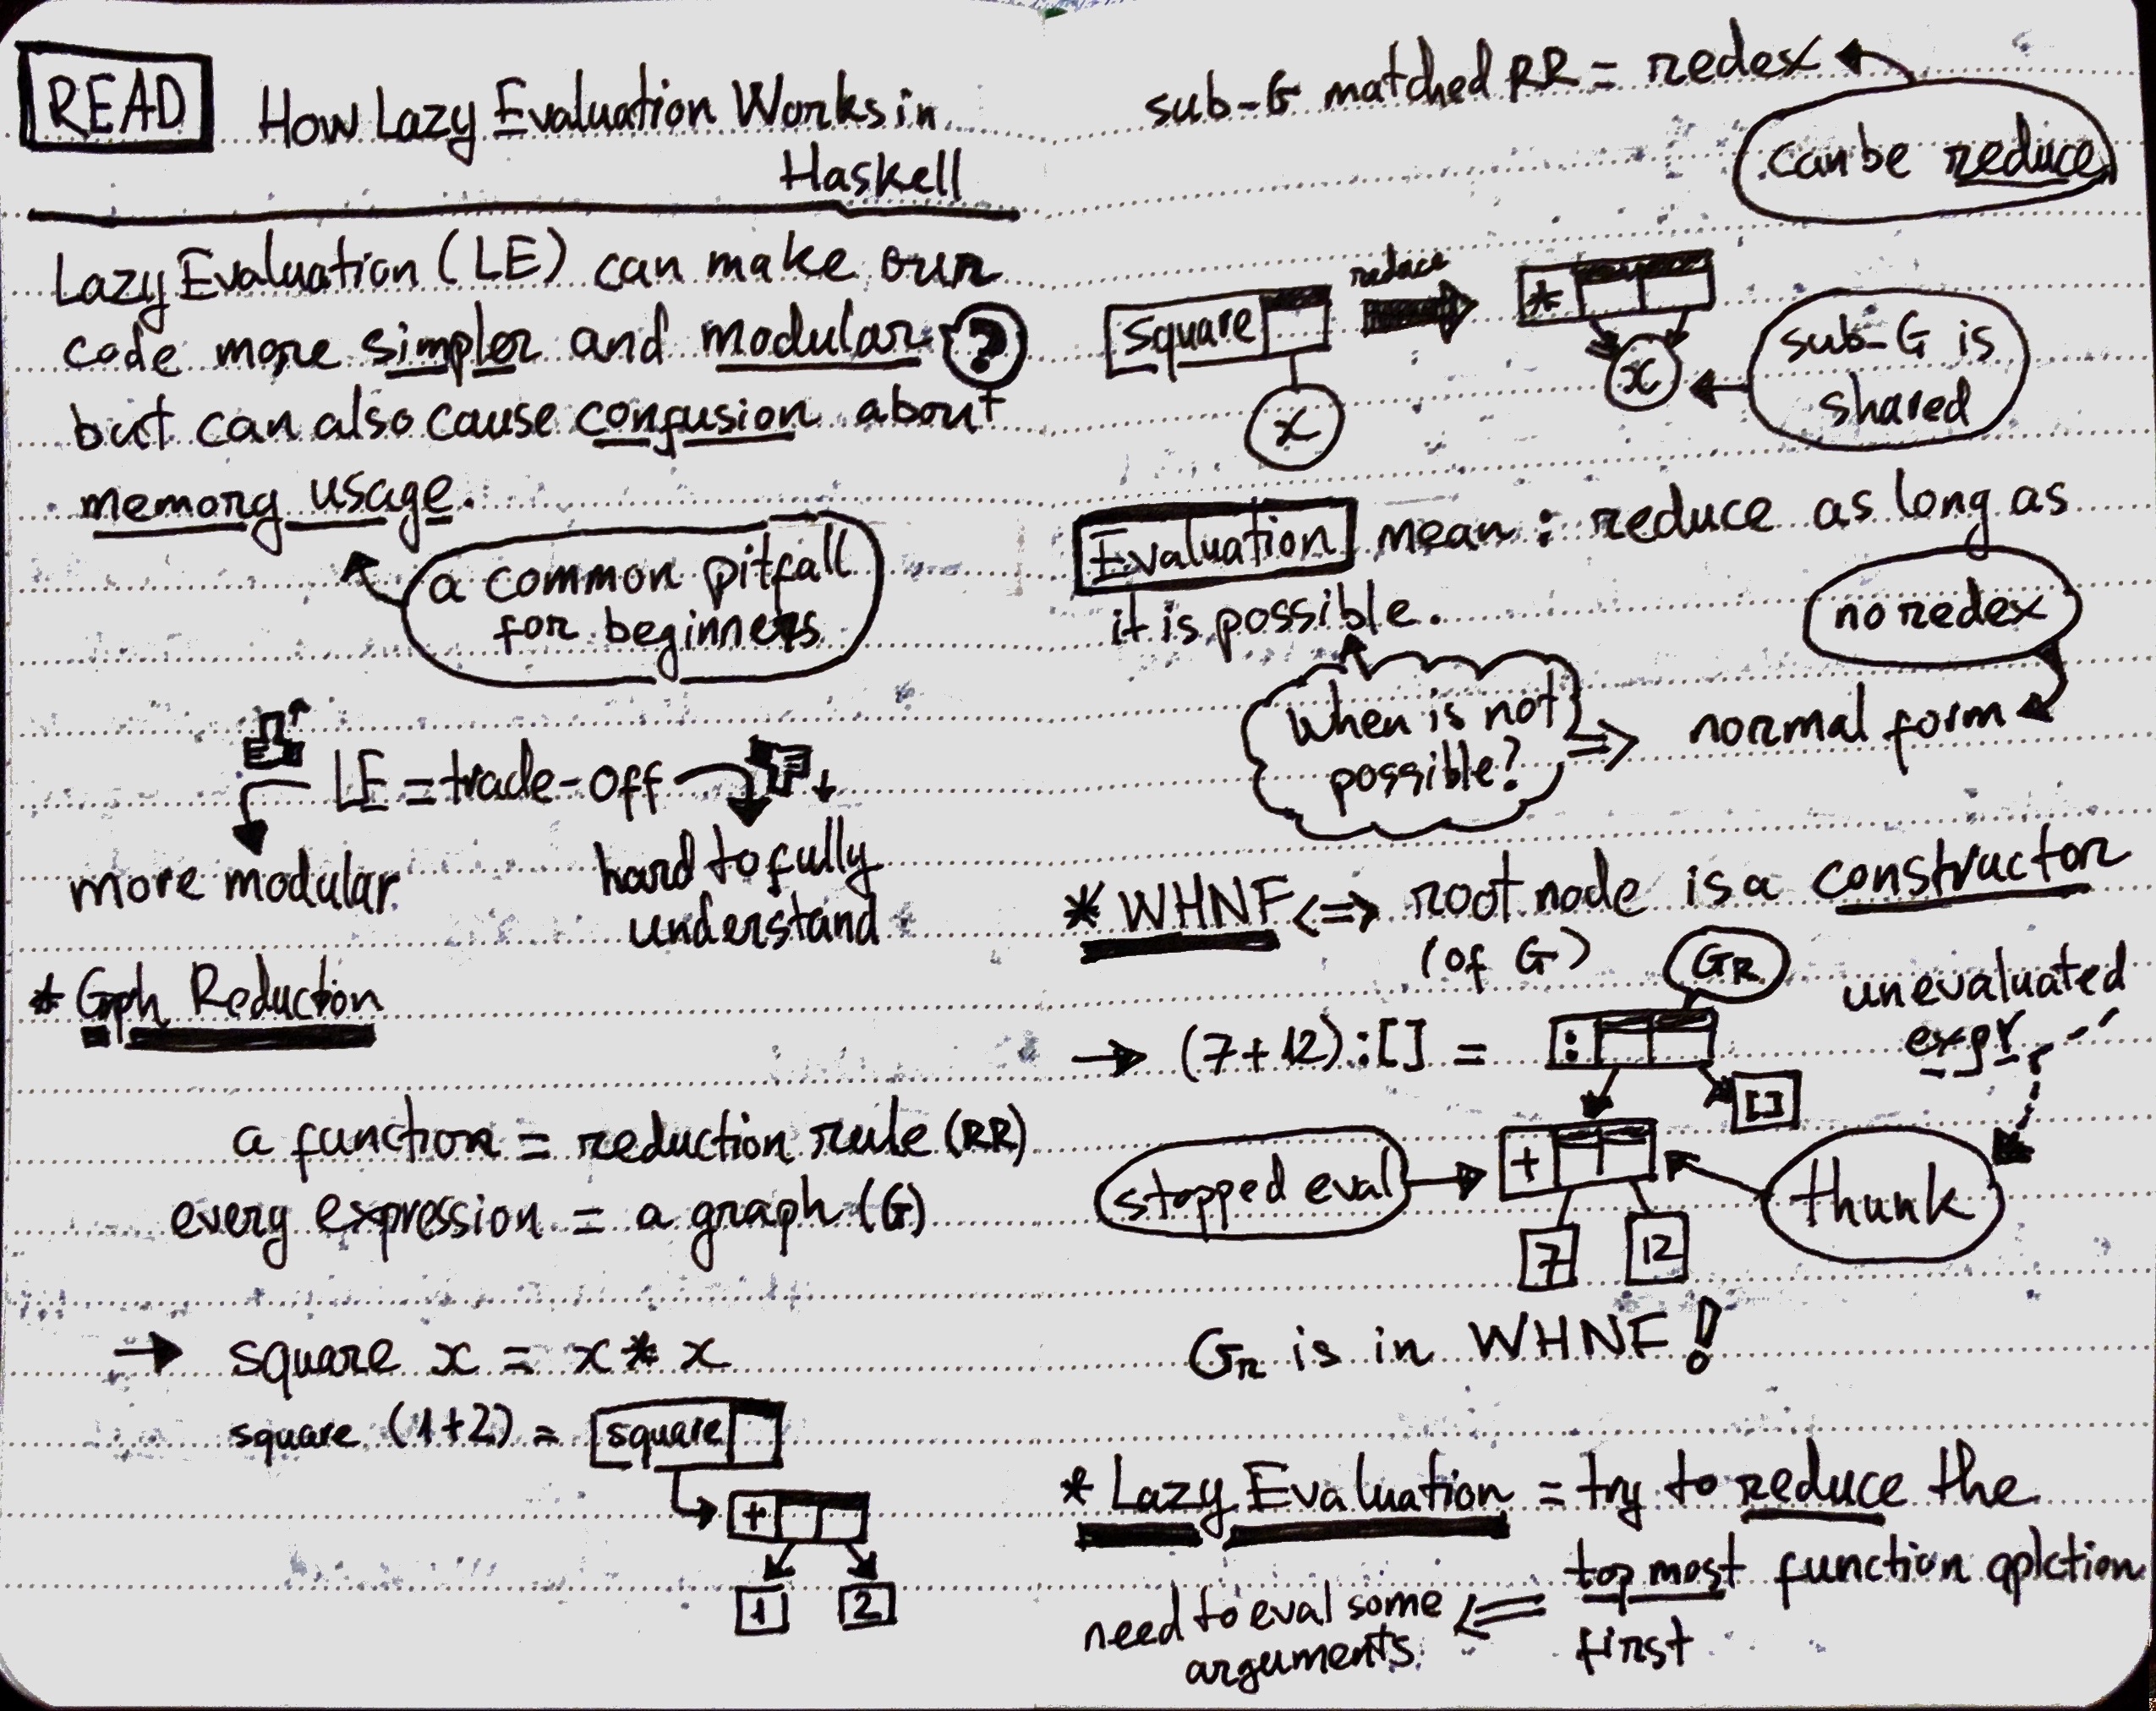 READ
How Lazy Evaluation Works in
Haskell
Lazy Evaluation (LE) can make our
code more simpler and modular ?
but can also cause confusion about
memory usage.
a common pitfall
for beginners
LE = trade-off
more modular
hard to fully
understand
* Gph Reduction
a function = reduction rule (RR)
every expression = a graph (G)
→ square x = x * x
square (1+2) = square
+
1 2
sub-G matched RR = redex
can be reduce
square reduce *
x x
sub-G is
shared
Evaluation mean : reduce as long as
it is possible.
no redex
when is not
possible?
⇒ normal form
* WHNF <=> root node is a constructor
(of G)
GR
unevaluated
expr
→ (7+12):[] = :
[]
stopped eval
+
thunk
7 12
GR is in WHNF!
* Lazy Evaluation = try to reduce the
top most function aplction
first
need to eval some
arguments